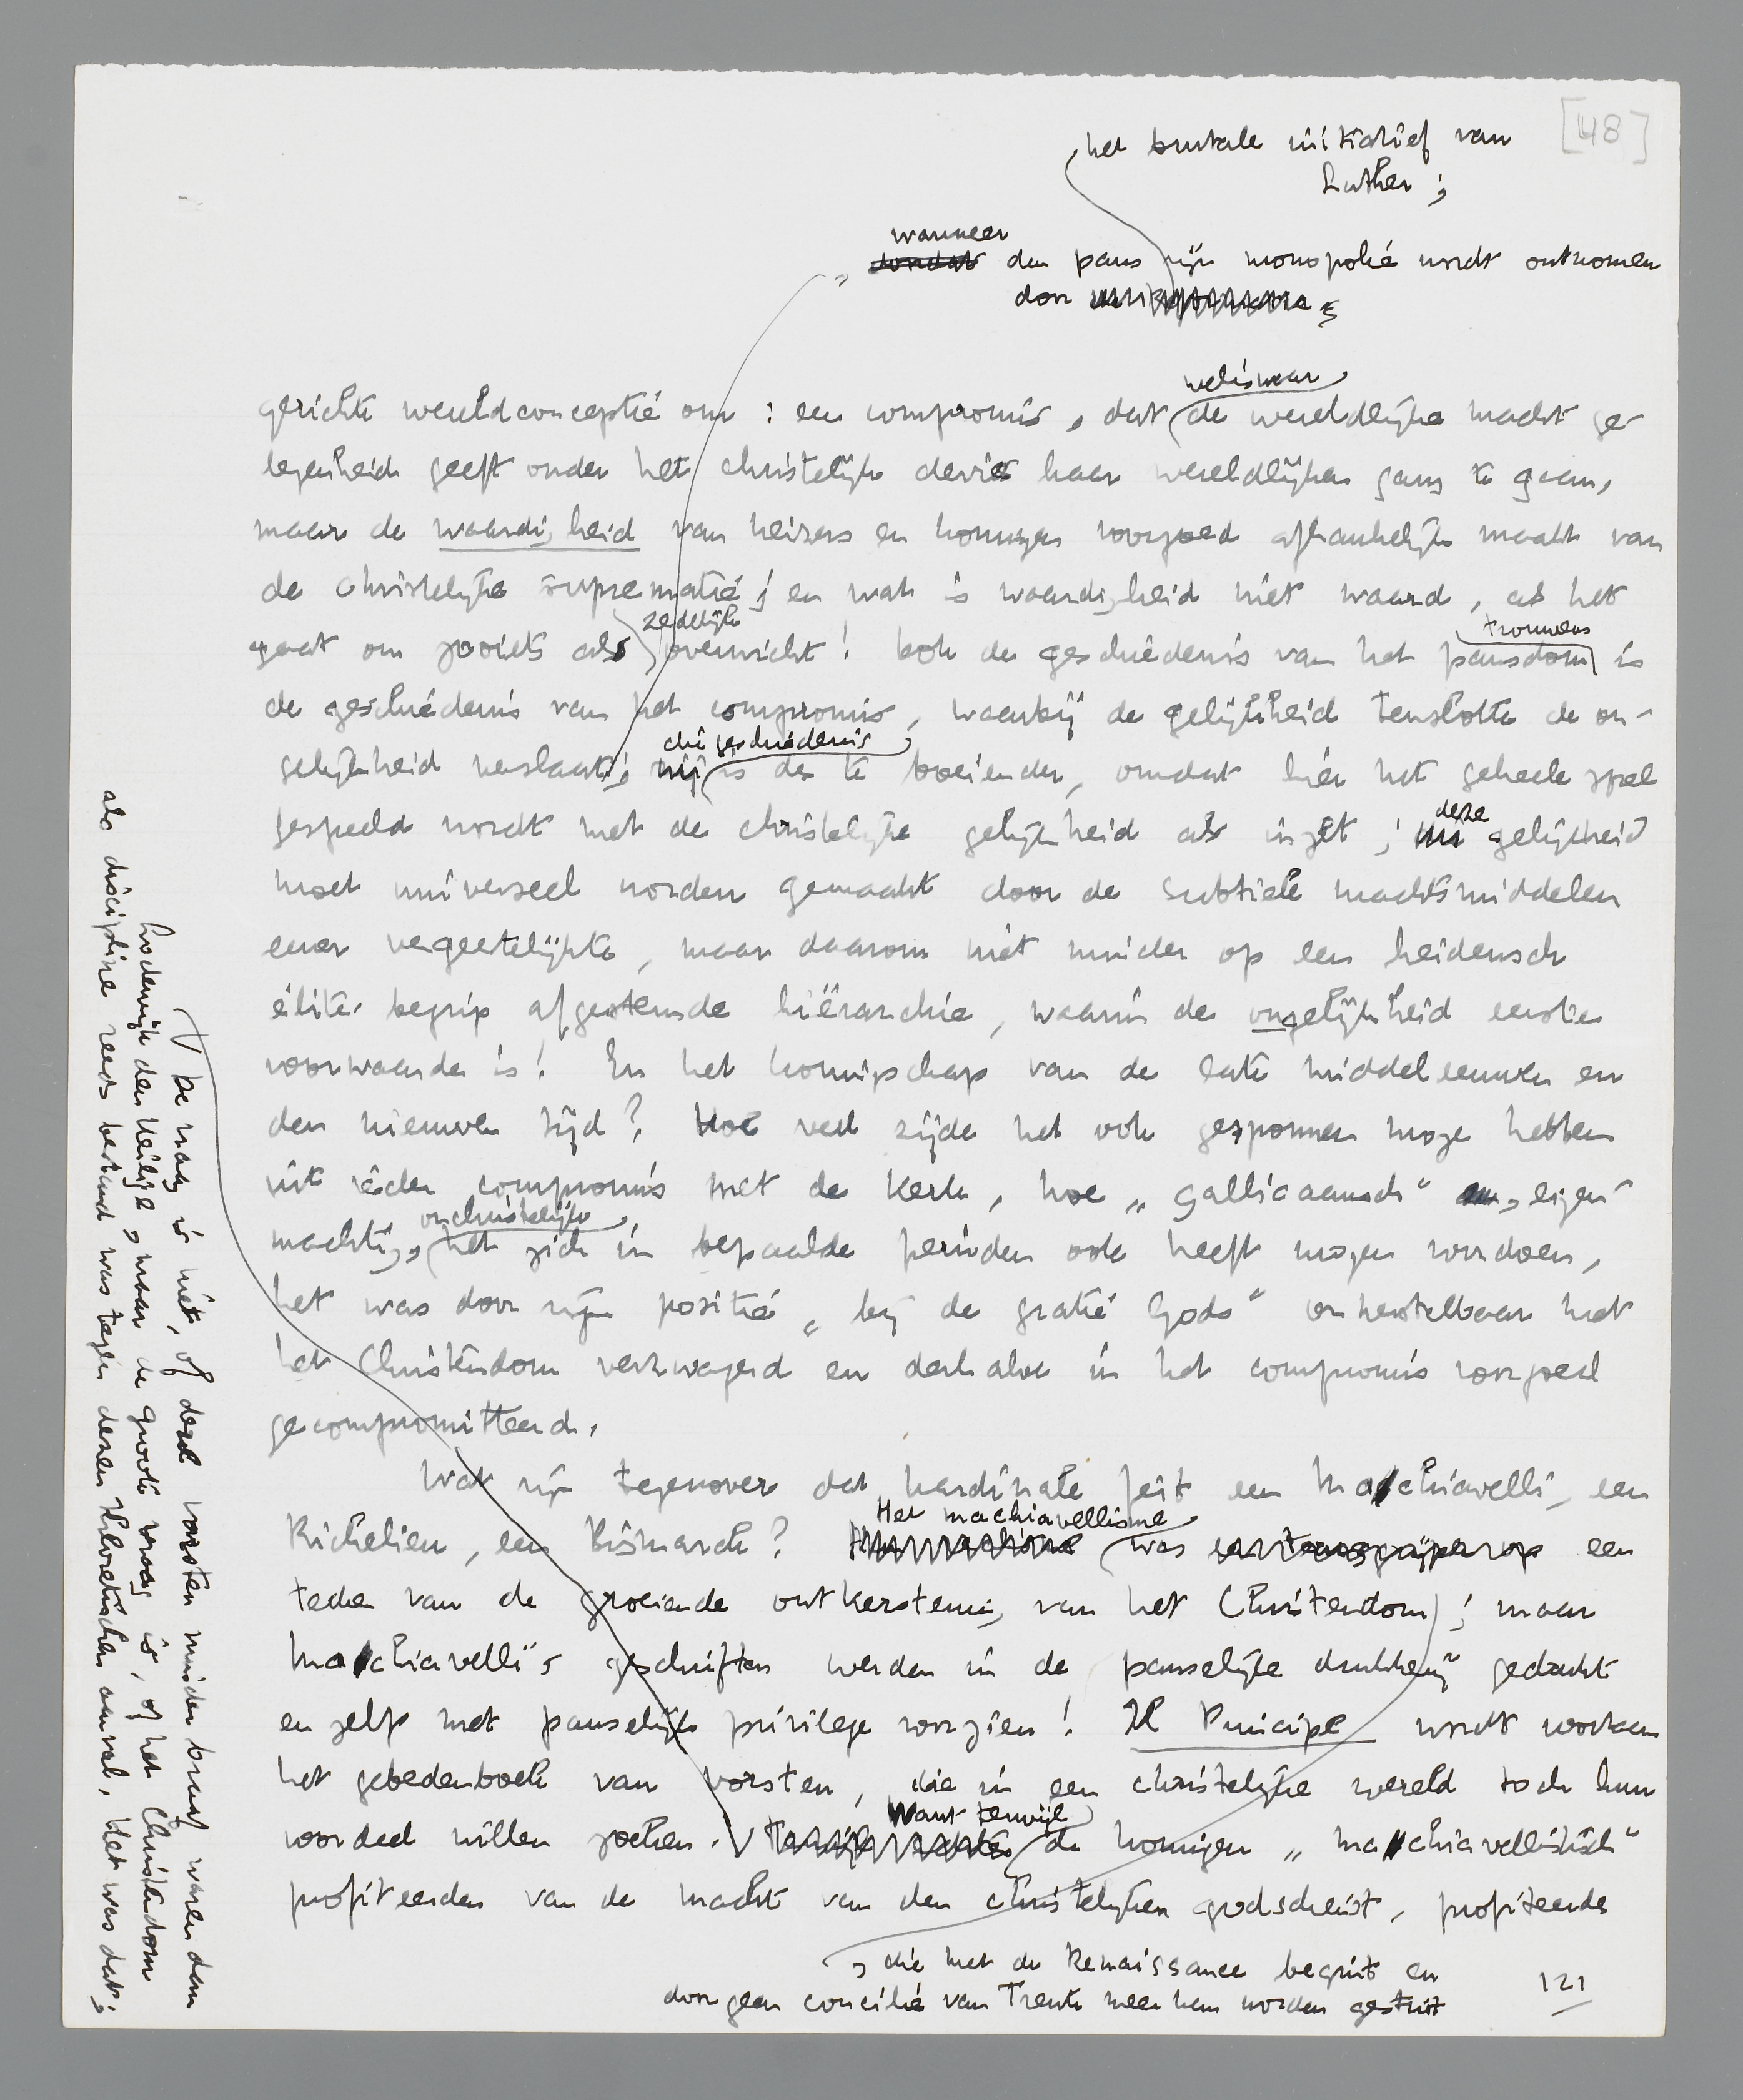 [48]
het brutale initiatief van
Luther ;
wanneer
„ den paus zijn monopolie wordt ontnomen
door
weliswaar
gerichte wereldconceptie om : een compromis, dat de wereldlijke macht ge-
legenheid geeft onder het christelijk devies haar wereldlijken gang te gaan,
maar de waardigheid van keizers en koningen voorgoed afhankelijk maakt van
de christelijke suprematie ; en wat is waardigheid niet waard, als het
zedelijk
trouwens
gaat om zooiets als overwicht ! Ook de geschiedenis van het pausdom is
de geschiedenis van het compromis, waarbij de gelijkheid tenslotte de on-
die geschiedenis
gelijkheid verslaat ; zij is des te boeiender, omdat hier het geheele spel
deze
gespeeld wordt met de christelijke gelijkheid als inzet ; gelijkheid
moet universeel worden gemaakt door de subtiele machtsmiddelen
eener vergeestelijkte, maar daarom niet minder op een heidensch
élite-begrip afgestemde hiërarchie, waarin de ongelijkheid eerste
voorwaarde is ! En het koningschap van de late middeleeuwen en
den nieuwen tijd ? Hoe veel zijde het ook gesponnen moge hebben
uit ieder compromis met de kerk, hoe „gallicaansch“ en eigen-
onchristelijk
machtig, het zich in bepaalde perioden ook heeft mogen voordoen,
het was door zijn positie „bij de gratie Gods“ onherstelbaar met
het Christendom verzwagerd en derhalve in het compromis voorgoed
gecompromitteerd.
Wat zijn tegenover dat kardinale feit een Machiavelli, een
Het machiavellisme
Richelieu, een Bismarck ? was een
teeken van de groeiende ontkerstening van het Christendom ; maar
Machiavelli's geschriften werden in de pauselijke drukkerij gedrukt
en zelfs met pauselijk privilege voorzien ! Il Principe wordt voortaan
het gebedenboek van vorsten, die in een christelijke wereld toch hun
Want terwijl
voordeel willen zoeken. de koningen „machiavellistisch“
profiteerden van de macht van den christelijken godsdienst, profiteerde
, die met de Renaissance begint en
door geen concilie van Trente meer kan worden gestuit
121
De vraag is niet, of deze vorsten minder braaf waren dan
Lodewijk den Heilige, maar de groote vraag is, of het Christendom
als discipline reeds bestand was tegen dezen aanval. Het was dat ;